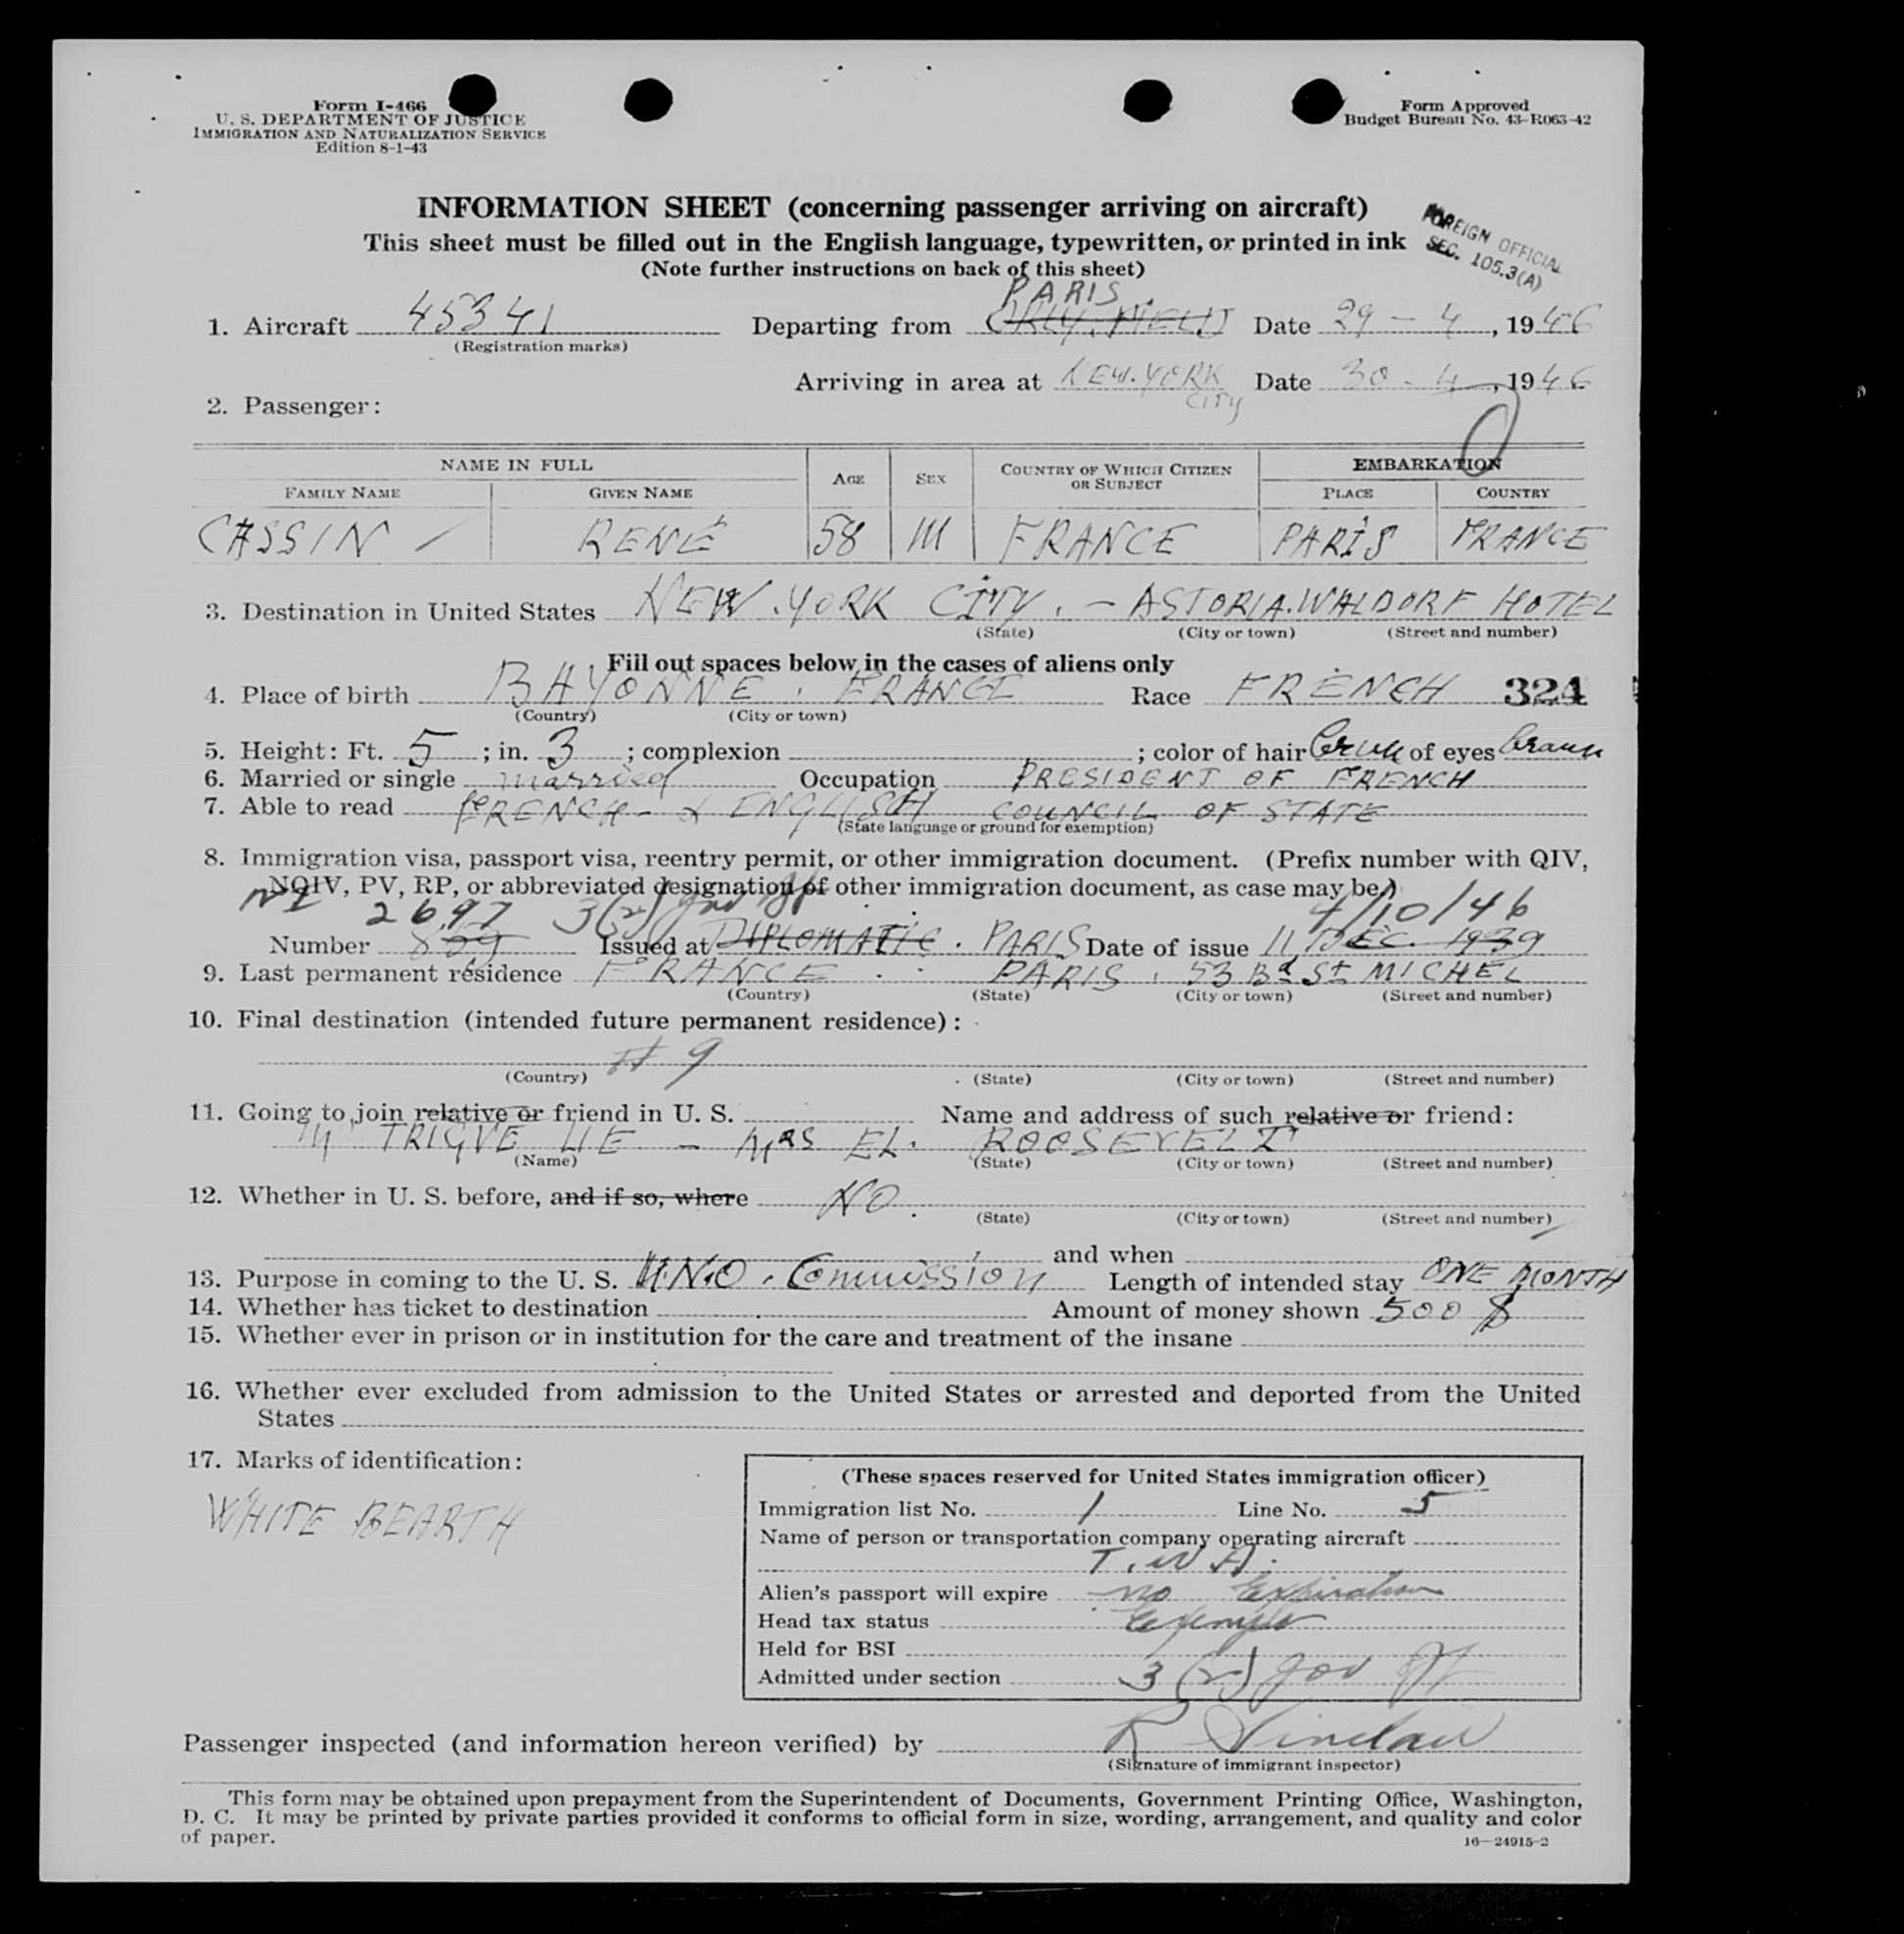 Form I-466
U. S. DEPARTMENT OF JUSTICE
IMMIGRATION AND NATURALIZATION SERVICE
Edition 8-1-43
Form Approved
Budget Bureau No. 43-R063-42
INFORMATION SHEET (concerning passenger arriving on aircraft)
This sheet must be filled out in the English language, typewritten, or printed in ink
(Note further instructions on back of this sheet)
FOREIGN OFFICIAL
SEC. 105.3(A)
PARIS.
1. Aircraft 45341 Departing from ORLY. FIELD Date 29 - 4, 1946
(Registration marks)
Arriving in area at NEW. YORK CITY Date 30 - 4, 1946
2. Passenger:
NAME IN FULL AGE SEX COUNTRY OF WHICH CITIZEN OR SUBJECT EMBARKATION
FAMILY NAME GIVEN NAME PLACE COUNTRY
CASSIN RENÉ 58 M FRANCE PARIS FRANCE
3. Destination in United States NEW. YORK CITY. - ASTORIA. WALDORF HOTEL
(State) (City or town) (Street and number)
Fill out spaces below in the cases of aliens only
4. Place of birth BAYONNE. FRANCE Race FRENCH 324
(Country) (City or town)
5. Height: Ft. 5; in. 3; complexion ; color of hair of eyes
6. Married or single married Occupation PRESIDENT OF FRENCH
7. Able to read FRENCH - & ENGLISH COUNCIL OF STATE
(State language or ground for exemption)
8. Immigration visa, passport visa, reentry permit, or other immigration document. (Prefix number with QIV,
NQIV, PV, RP, or abbreviated designation of other immigration document, as case may be.)
2697 3(2) gov 4/10/46
Number 829 Issued at DIPLOMATIC. PARIS Date of issue 11 DEC. 1939
9. Last permanent résidence FRANCE. PARIS. 53 Bd St MICHEL
(Country) (State) (City or town) (Street and number)
10. Final destination (intended future permanent residence):
# 9
(Country) (State) (City or town) (Street and number)
11. Going to join relative or friend in U. S. Name and address of such relative or friend:
M TRIGVE LIE - MRS EL. ROOSEVELT
(Name) (State) (City or town) (Street and number)
12. Whether in U. S. before, and if so, where NO.
(State) (City or town) (Street and number)
and when
13. Purpose in coming to the U. S. U.N.O. Commission Length of intended stay ONE MONTH
14. Whether has ticket to destination Amount of money shown 500 $
15. Whether ever in prison or in institution for the care and treatment of the insane
16. Whether ever excluded from admission to the United States or arrested and deported from the United
States
17. Marks of identification:
WHITE BEARTH
(These spaces reserved for United States immigration officer)
Immigration list No. 1 Line No. 5
Name of person or transportation company operating aircraft
T.W.A.
Alien's passport will expire no Expiration
Head tax status Exempt
Held for BSI
Admitted under section 3(2) gov
Passenger inspected (and information hereon verified) by R Sinclair
(Signature of immigrant inspector)
This form may be obtained upon prepayment from the Superintendent of Documents, Government Printing Office, Washington,
D. C. It may be printed by private parties provided it conforms to official form in size, wording, arrangement, and quality and color
of paper.
16-24915-2